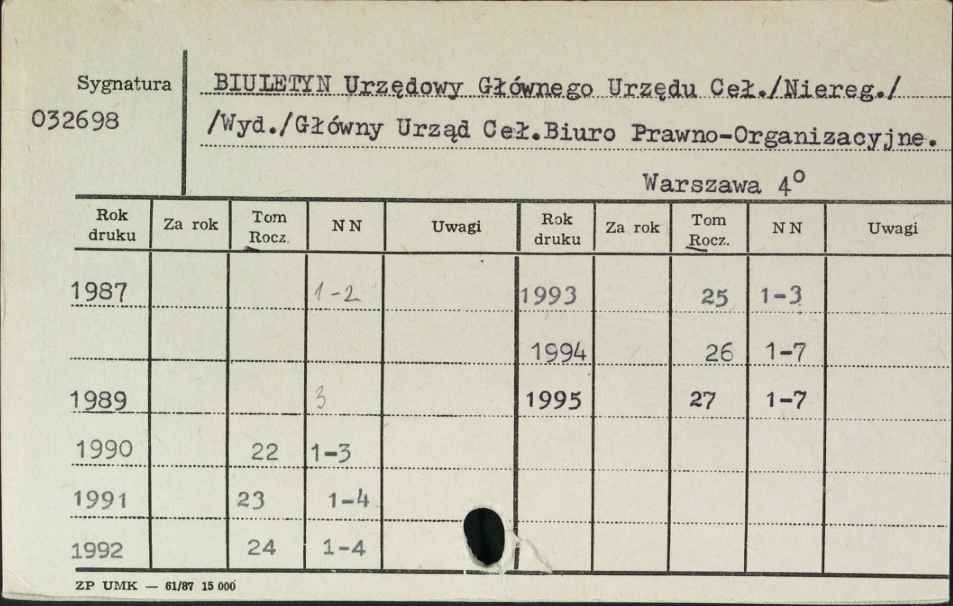 Sygnatura
032698
BIULETYN Urzędowy Głównego Urzędu Ceł./Niereg./
/Wyd./Główny Urząd Ceł.Biuro Prawno-Organizacyjne.
Warszawa 4°
Rok druku Za rok Tom Rocz. NN Uwagi Rok druku Za rok Tom Rocz. NN Uwagi
1987 1-2 1993 25 1-3
1994 26 1-7
1989 3 1995 27 1-7
1990 22 1-3
1991 23 1-4
1992 24 1-4
ZP UMK — 61/87 15 000